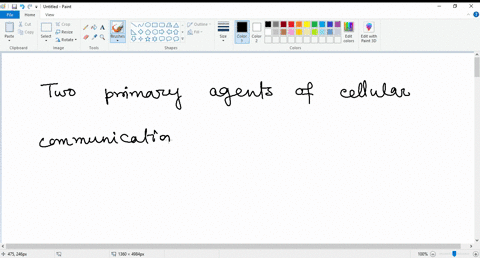 Untitled - Paint
File Home View
Paste Cut Copy Clipboard
Select Crop Resize Rotate Image
Tools
Brushes
Shapes Outline Fill
Size
Color 1 Color 2 Colors
Edit colors
Edit with Paint 3D
Two primary agents of cellular
communicatio
473, 246px 1380 × 4984px 100%